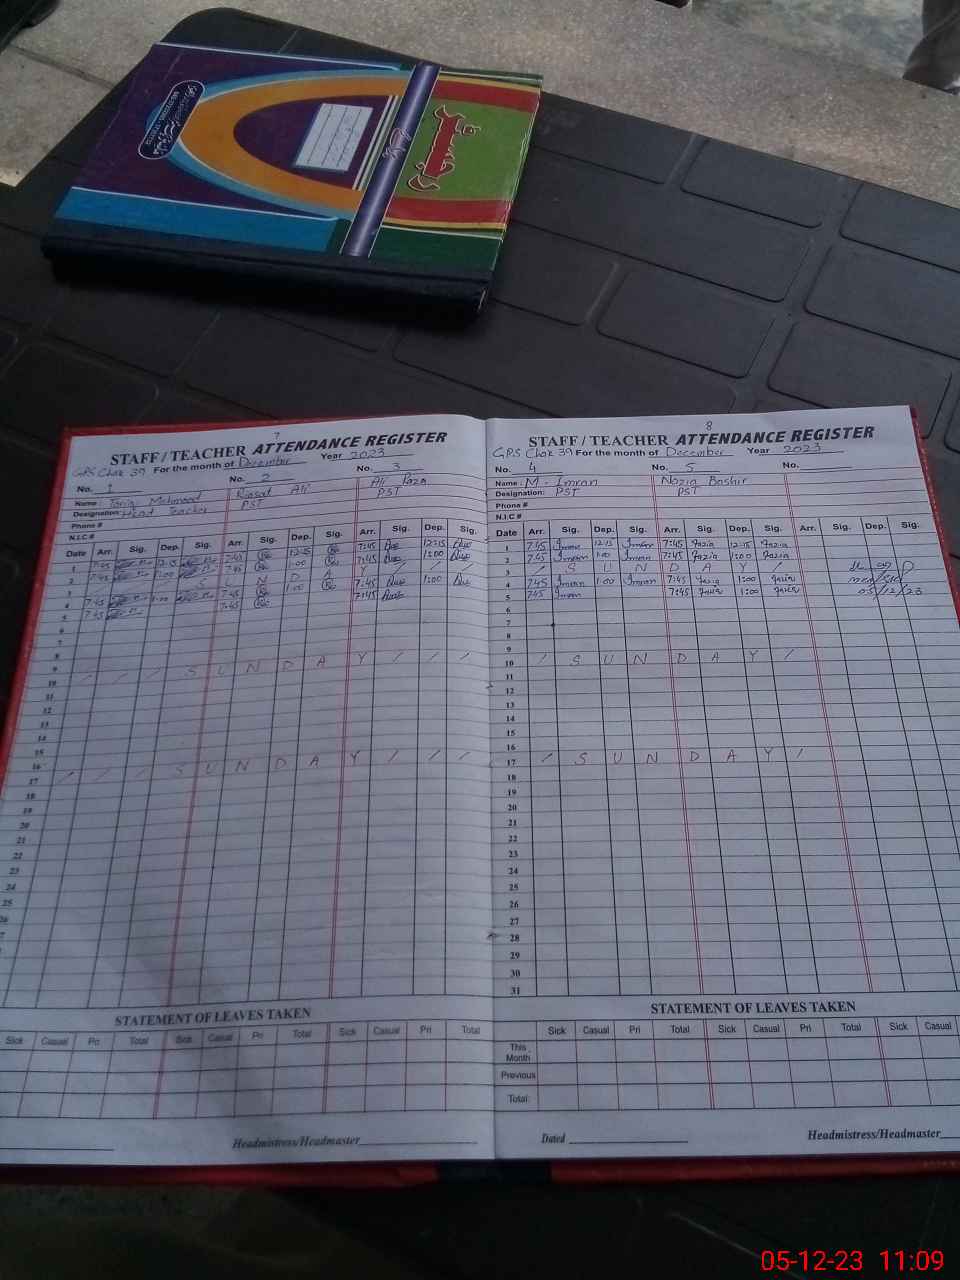 رجسٹر
7
STAFF / TEACHER ATTENDANCE REGISTER
GPS Chak 39 For the month of December Year 2023
No. 1 No. 2 No. 3
Name : Tariq Mehmood Riasat Ali Ali Raza
Designation: Head Teacher PST PST
Phone #
N.I.C #
Date Arr. Sig. Dep. Sig. Arr. Sig. Dep. Sig. Arr. Sig. Dep. Sig.
1 7:45 12:15 7:45 12:15 7:45 12:15
2 7:45 1:00 7:45 1:00 7:45 1:00
3 S U N D A Y / / /
4 7:45 1:00 7:45 1:00 7:45 1:00
5 7:45 7:45 7:45
6
7
8
9
10 / / / S U N D A Y / / /
11
12
13
14
15
16
17 / / / S U N D A Y / / /
18
19
20
21
22
23
24
25
26
STATEMENT OF LEAVES TAKEN
Sick Casual Pri Total Sick Casual Pri Total Sick Casual Pri Total
Headmistress/Headmaster
8
STAFF / TEACHER ATTENDANCE REGISTER
GPS Chak 39 For the month of December Year 2023
No. 4 No. 5 No.
Name : M - Imran Nazia Bashir
Designation: PST PST
Phone #
N.I.C #
Date Arr. Sig. Dep. Sig. Arr. Sig. Dep. Sig. Arr. Sig. Dep. Sig.
1 7:45 Imran 12:15 Imran 7:45 Nazia 12:15 Nazia
2 7:45 Imran 1:00 Imran 7:45 Nazia 1:00 Nazia
3 S U N D A Y /
4 7:45 Imran 1:00 Imran 7:45 Nazia 1:00 Nazia
5 7:45 Imran 7:45 Nazia 1:00 Nazia 05/12/23
6
7
8
9
10 / S U N D A Y /
11
12
13
14
15
16
17 / S U N D A Y /
18
19
20
21
22
23
24
25
26
27
28
29
30
31
STATEMENT OF LEAVES TAKEN
Sick Casual Pri Total Sick Casual Pri Total Sick Casual
This Month
Previous
Total:
Dated Headmistress/Headmaster
05-12-23 11:09